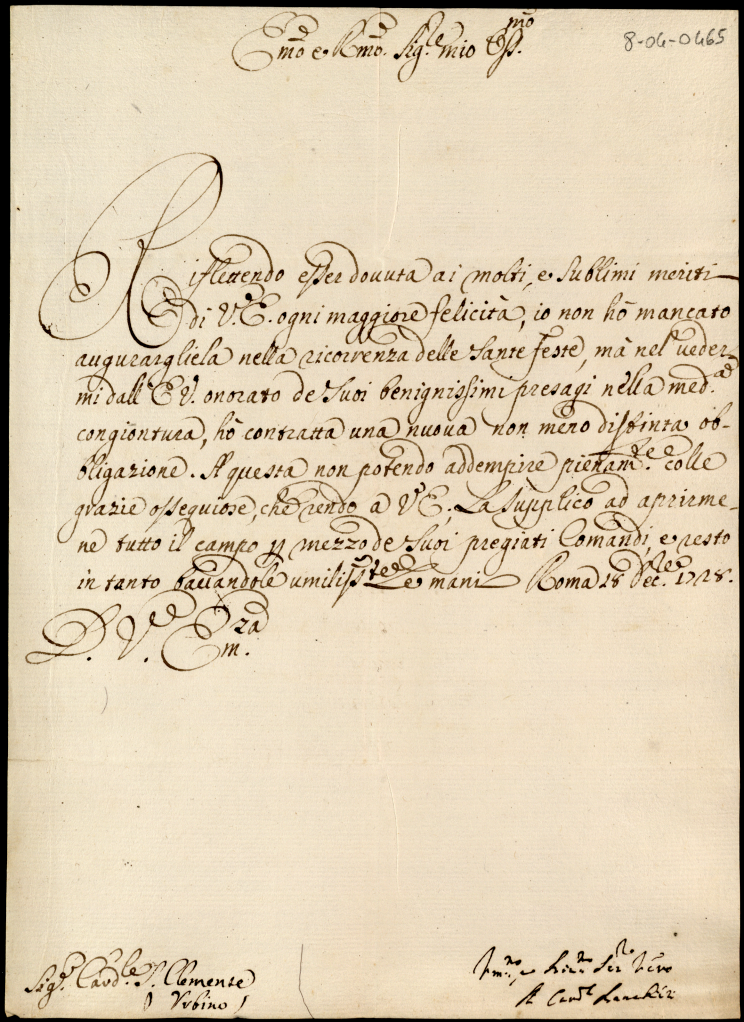 Emo e Rmo. Sig.re mio Oss.mo
8-04-0465
Riflettendo esser dovuta ai molti, e sublimi meriti
di V.E. ogni maggiore felicità, io non hò mancato
augurargliela nella ricorrenza delle Sante feste, mà nel veder-
mi dall'E V. onorato de Suoi benignissimi presagi nella med.a
congiontura, hò contratta una nuova non meno distinta ob-
bligazione. A questa non potendo addempire pienam.te colle
grazie ossequiose, che rendo à V E, La supplico ad aprirme-
ne tutto il campo p mezzo de Suoi pregiati Comandi, e resto
in tanto bacciandole umiliss.te le mani Roma 18 Dec.re 1728.
D. V. Em.za
Sig.r Card.le S. Clemente
Urbino
Ser.
Il Card.l